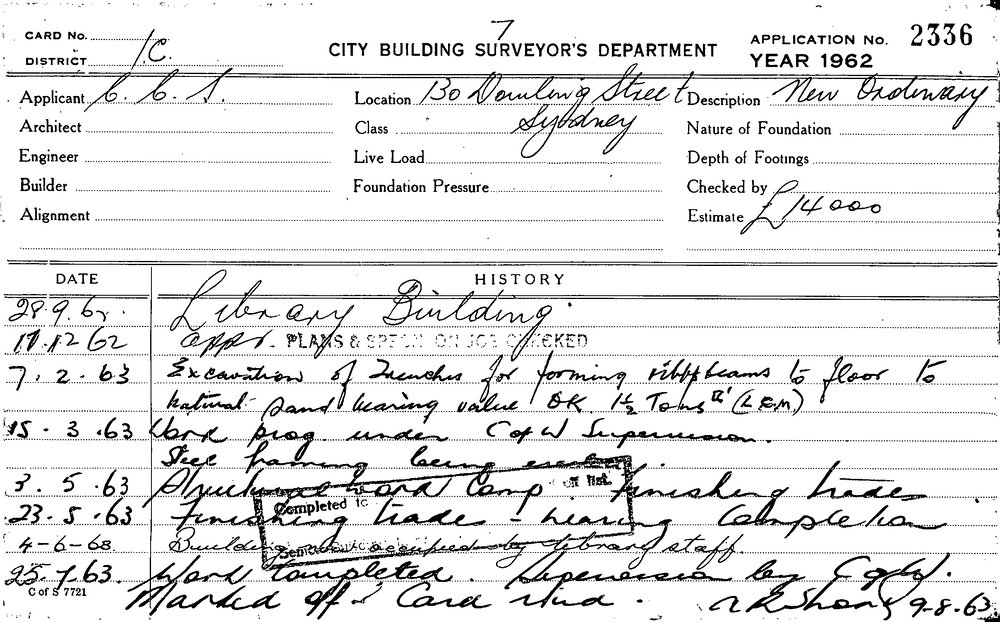 7
CARD No.
DISTRICT 1C.
CITY BUILDING SURVEYOR'S DEPARTMENT
APPLICATION No. 2336
YEAR 1962
Applicant C. C. S. Location 130 Dowling Street Description New Ordinary
Architect Class Sydney Nature of Foundation
Engineer Live Load Depth of Footings
Builder Foundation Pressure Checked by
Alignment Estimate £14000
DATE HISTORY
28.9.62. Library Building.
11.12 62 appr. PLANS & SPECN ON JOB CHECKED
7.2.63 Excavation of Trenches for forming ribbs beams to floor to
natural sand bearing value OK 1½ Tons
15.3.63 Work prog. under C of W Supervision.
Steel framing being erected.
3.5.63 Structural work Comp. Finishing trades
Completed off list.
23.5.63 Finishing trades - nearing Completion
4-6-63. Building occupied by library staff.
25.7.63. Work Completed. Supervision by C of W.
C of S 7721
Marked off Card 9-8-63